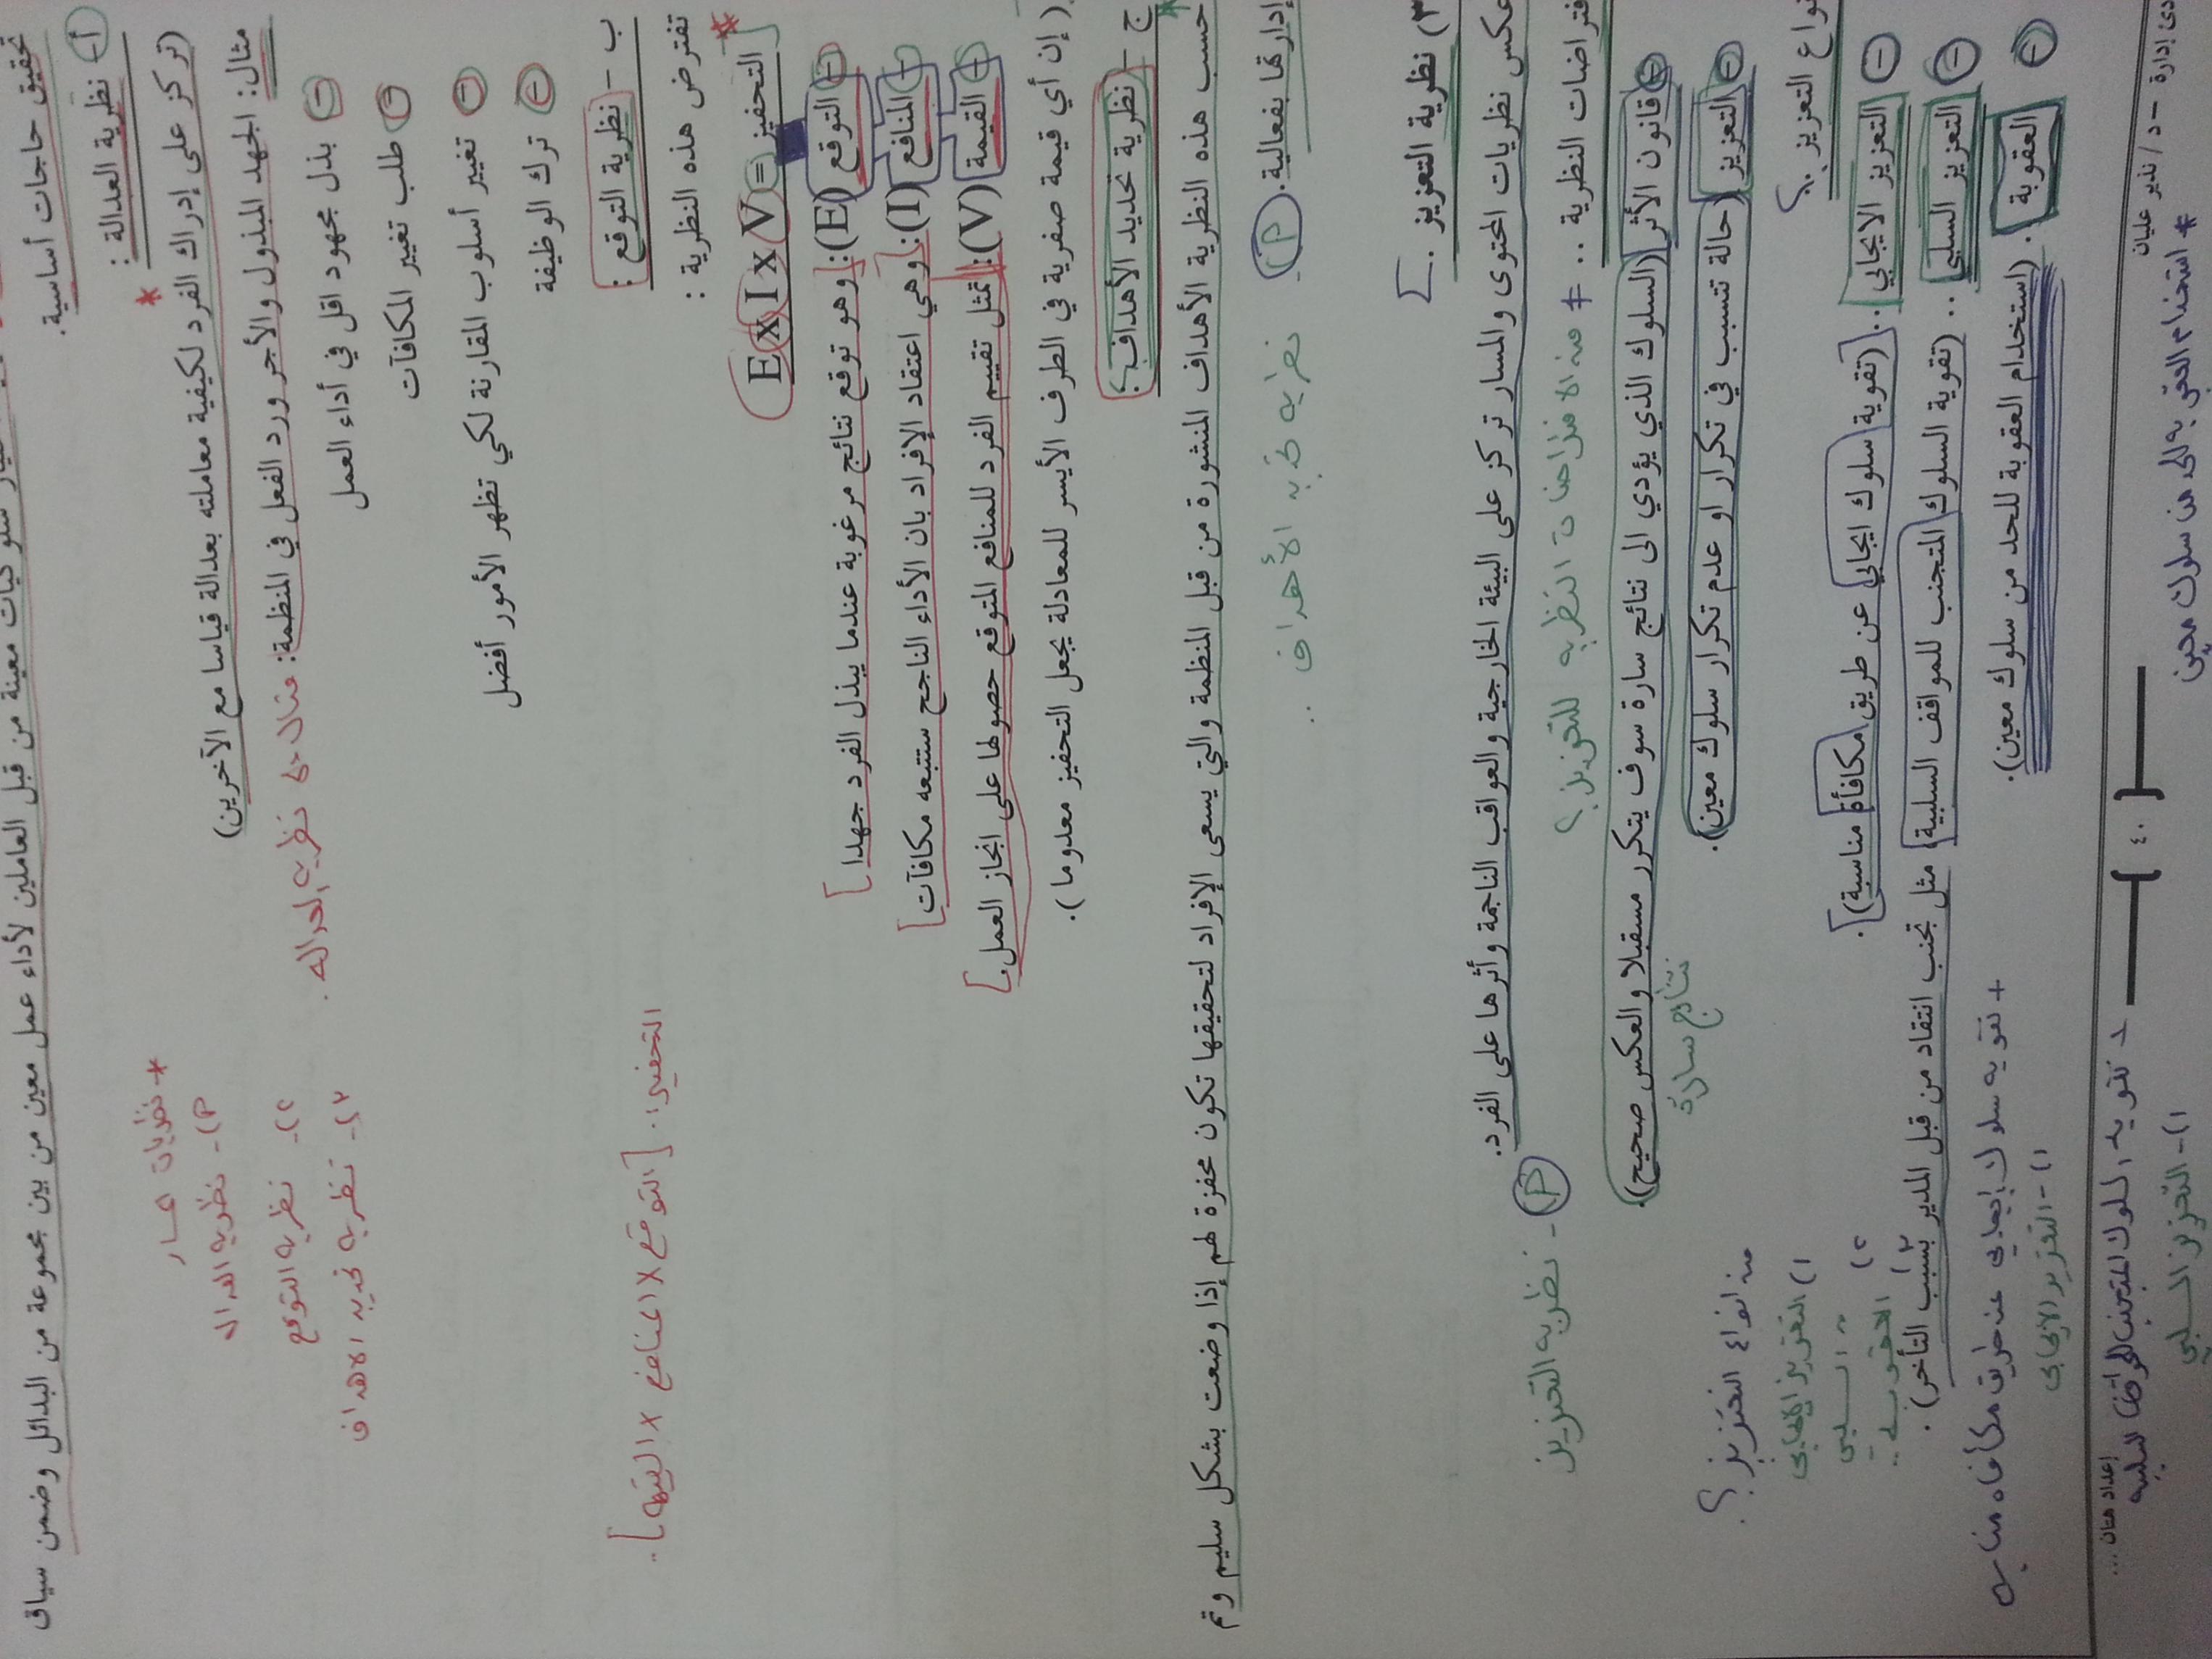 سلوكيات معينة من قبل العاملين لأداء عمل معين من بين مجموعة من البدائل وضمن سياق
تحقيق حاجات أساسية.
أ- نظرية العدالة :
(تركز على إدراك الفرد لكيفية معاملته بعدالة قياسا مع الآخرين)
* نظريات
١)- نظريه العداله
٢)- نظريه التوقع
٣)- نظريه تحديد الاهداف
مثال: الجهد المبذول والأجر ورد الفعل في المنظمة: مثال على نظريه العداله.
بذل مجهود اقل في أداء العمل
طلب تغيير المكافآت
تغيير أسلوب المقارنة لكي تظهر الأمور أفضل
ترك الوظيفة
ب - نظرية التوقع :
تفترض هذه النظرية :
التحفيز: [التوقع x المنافع x القيمه].
* [التحفيز = E x I x V
التوقع (E): [وهو توقع نتائج مرغوبة عندما يبذل الفرد جهدا]
المنافع (I): [وهي اعتقاد الإفراد بان الأداء الناجح ستتبعه مكافآت]
القيمة (V): [تمثل تقييم الفرد للمنافع المتوقع حصولها على انجاز العمل.]
(إن أي قيمة صفرية في الطرف الأيسر للمعادلة يجعل التحفيز معدوما).
ج - نظرية تحديد الأهداف:
حسب هذه النظرية الأهداف المنشورة من قبل المنظمة والتي يسعى الإفراد لتحقيقها تكون محفزة لهم إذا وضعت بشكل سليم وتم
إدارتها بفعالية.
نظرية تحديد الأهداف
٣) نظرية التعزيز ..
عكس نظريات المحتوى والمسار تركز على البيئة الخارجية والعواقب الناجمة وأثرها على الفرد.
- نظريه التعزيز
فتراضات النظرية ..
* من الافتراضات النظريه للتعزيز؟
قانون الأثر (السلوك الذي يؤدي الى نتائج سارة سوف يتكرر مسقبلا والعكس صحيح).
نتائج سارة
التعزيز (حالة تتسبب في تكرار او عدم تكرار سلوك معين).
من انواع التعزيز؟
١) التعزيز الايجابي
٢) السلبي
٣) العقوبه..
نواع التعزيز ؟
التعزيز الايجابي .. [(تقوية سلوك ايجابي عن طريق مكافأة مناسبة)].
التعزيز السلبي .. (تقوية السلوك المتجنب للمواقف السلبية مثل تجنب انتقاد من قبل المدير بسبب التأخر).
العقوبة . (استخدام العقوبة للحد من سلوك معين).
١)- التعزيز الايجابي
+ تقويه سلوك إيجابي عن طريق مكافاه مناسبه
دئ إدارة – د / نذير عليان
{ ٤٠ }
إعداد هتان ...
* استخدام العقوبه للحد من سلوك معين
١)- التعزيز السلبي
تقويه السلوك المتجنب للمواقف السلبيه